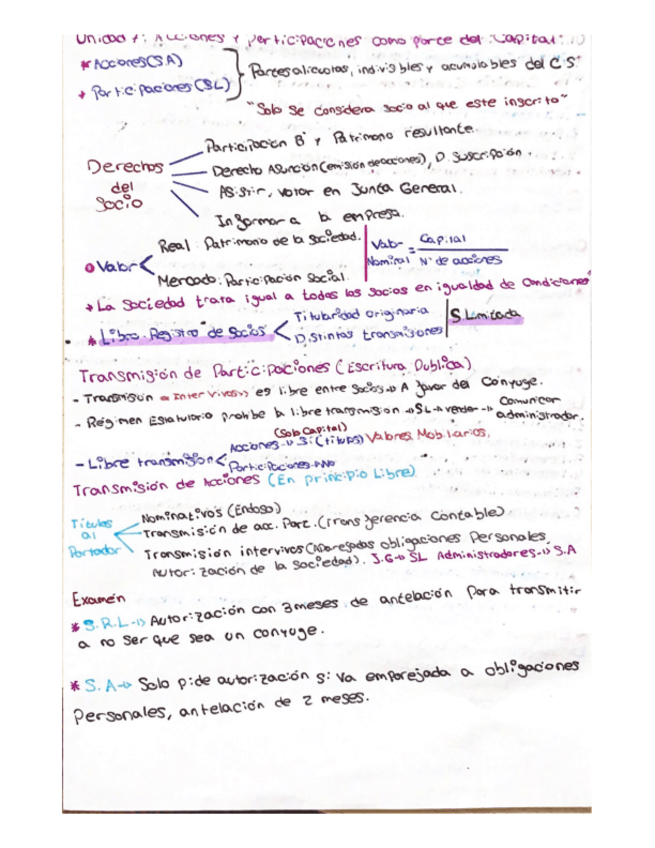 Unidad 7: Acciones y participaciones como parte del Capital
* Acciones (SA)
* Participaciones (SL)
Partes alicuotas, indivisibles y acumulables del C.S.
"Solo se considera socio al que este inscrito"
Derechos del Socio
Participación Bº y Patrimonio resultante.
Derecho Asunción (emisión de acciones), D. Suscripción.
Asistir, votar en Junta General.
Informar a la empresa.
Valor
Real: Patrimonio de la Sociedad.
Mercado: Participación Social.
Valor Nominal = Capital / Nº de acciones
* La Sociedad trata igual a todos los socios en igualdad de Condiciones
* Libro Registro de Socios
Titularidad originaria
Distintas transmisiones
S. Limitada
Transmisión de Participaciones (Escritura Publica)
- Transmisión "Inter Vivos" es libre entre Socios → A favor del Conyuge.
- Régimen Estatutario prohibe la libre transmision → SL → vender → Comunicar administrador.
(Sob Capital)
- Libre transmisión
Acciones → Si (titulos) Valores Mobiliarios.
Participaciones → No
Transmisión de Acciones (En principio Libre)
Titulos al Portador
Nominativos (Endoso)
Transmisión de acc. Port. (transferencia Contable)
Transmisión intervivos (Aparejadas obligaciones Personales, Autorización de la Sociedad). J.G → SL Administradores → S.A
Examén
* S.R.L → Autorización con 3 meses de antelación para transmitir
a no ser que sea un conyuge.
* S.A → Solo pide autorización si va emparejada a obligaciones
Personales, antelación de 2 meses.